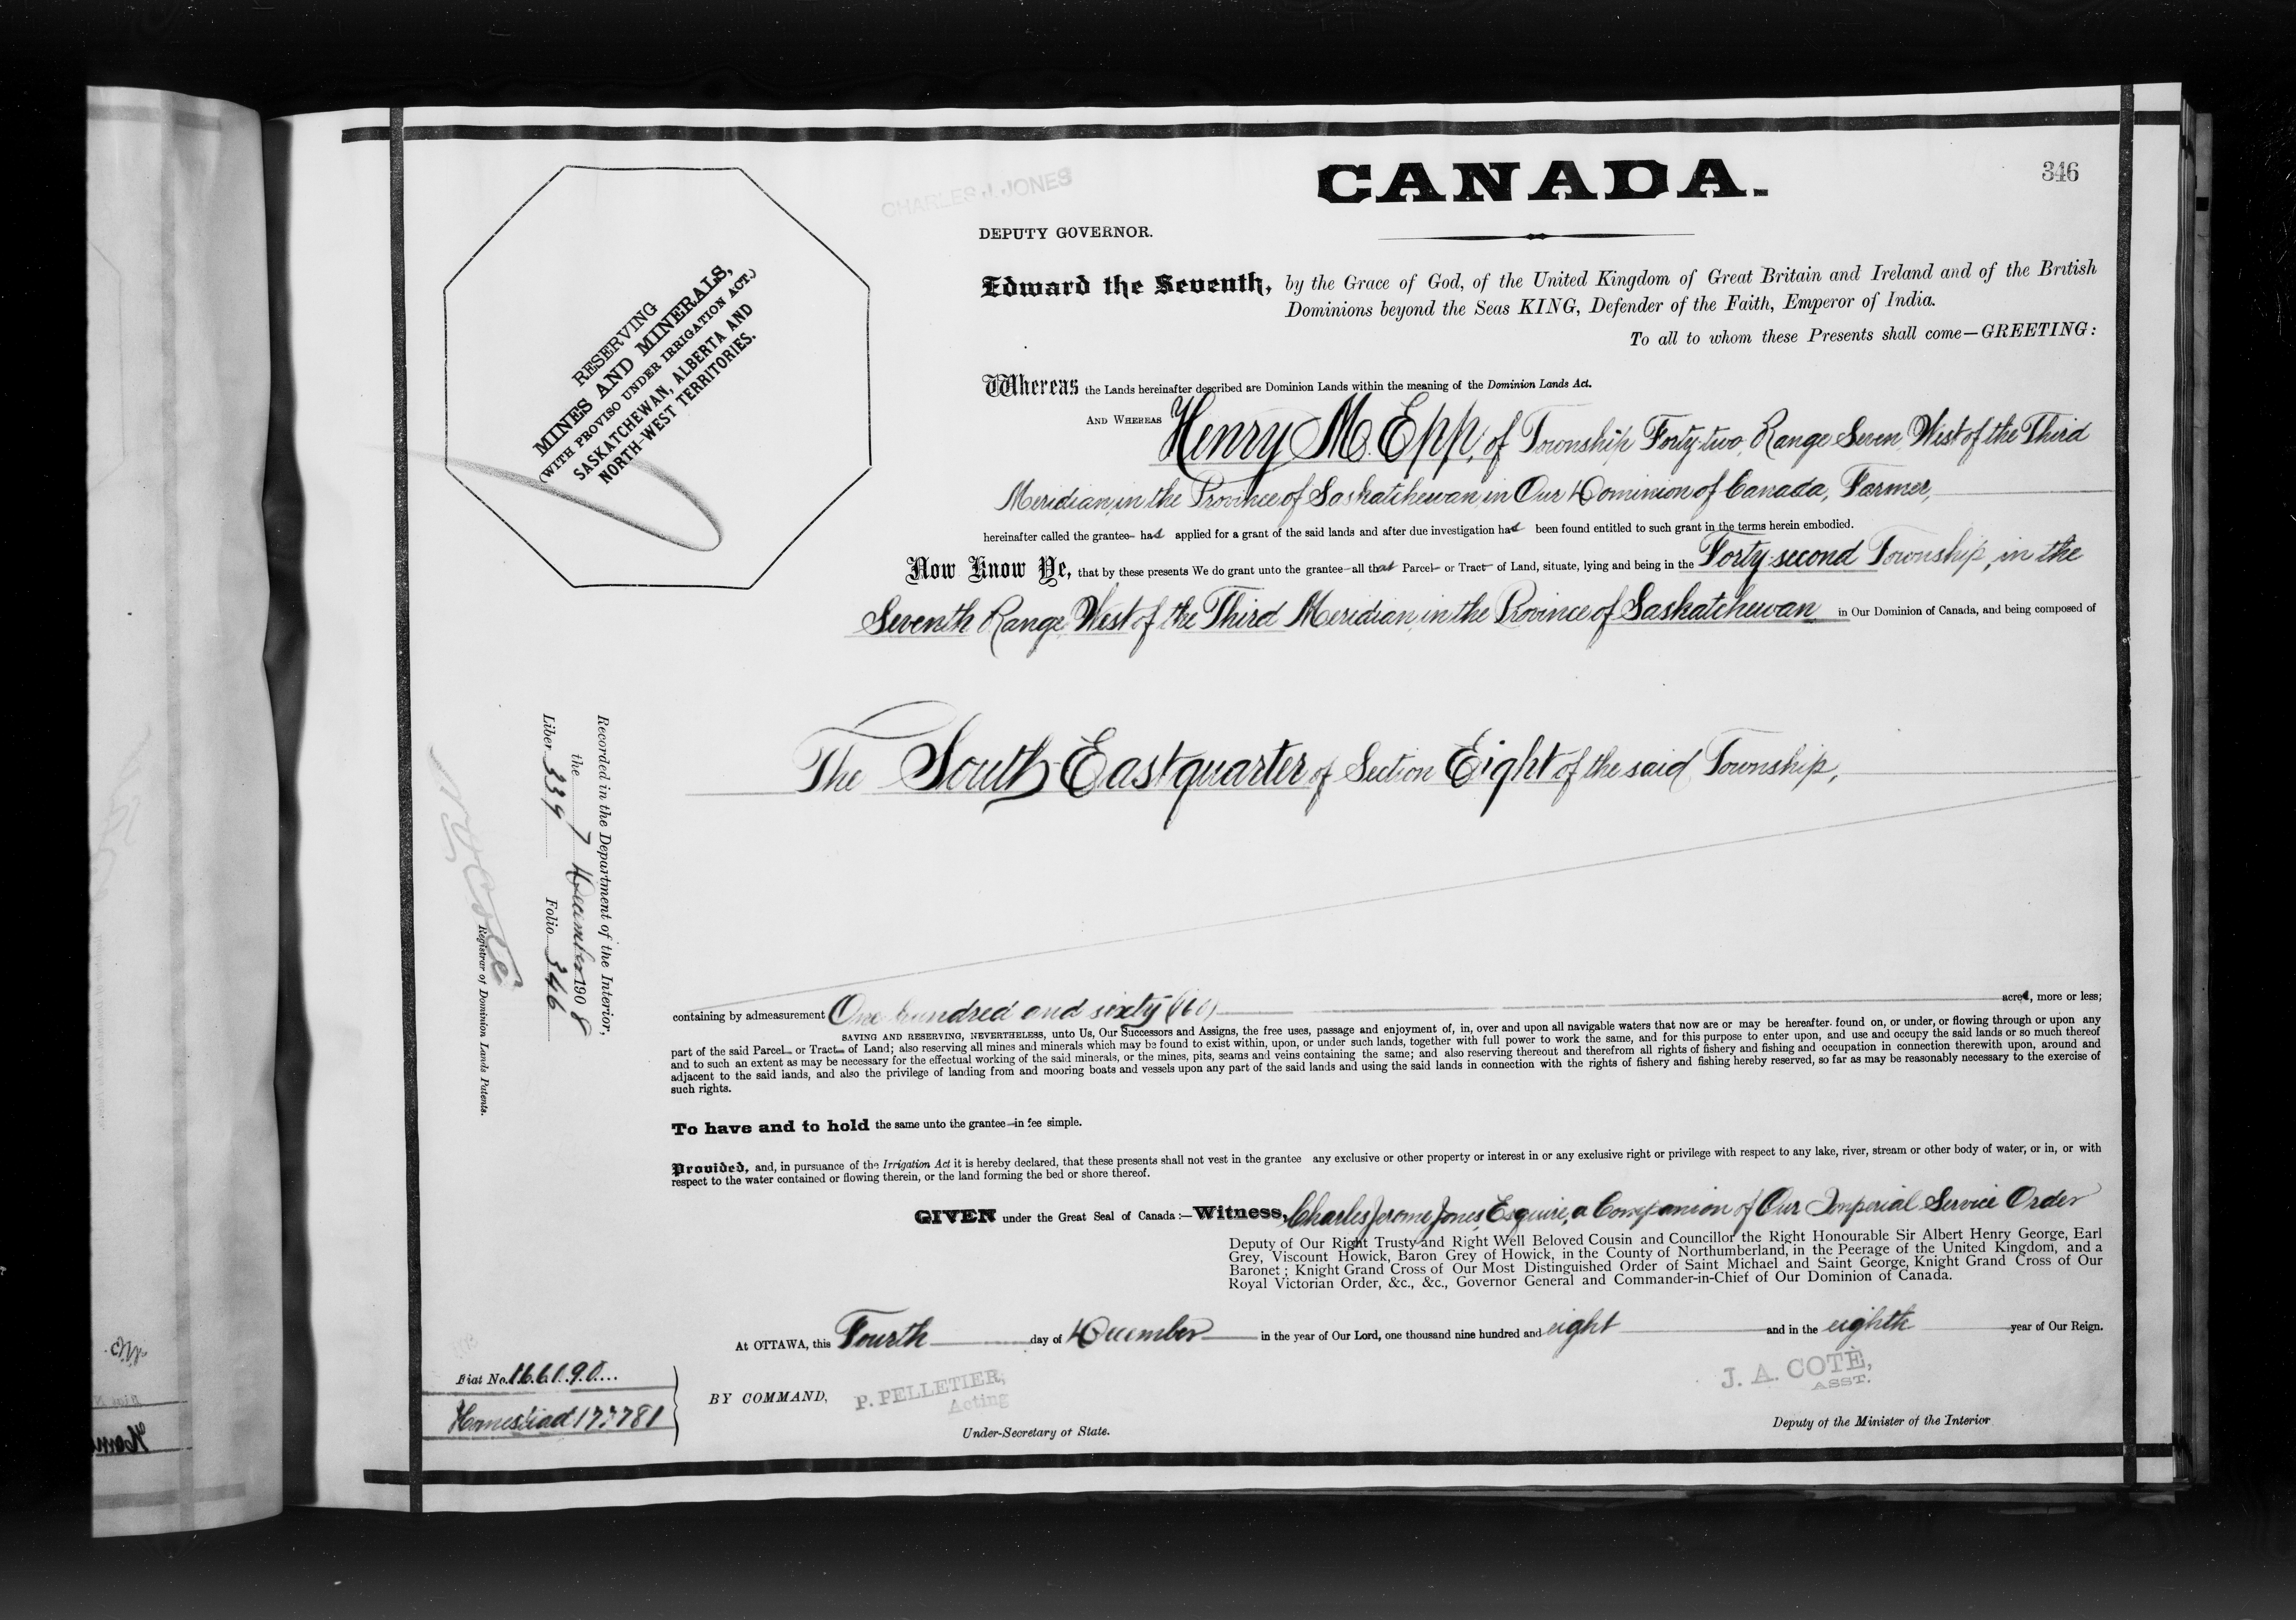 CANADA.
346
CHARLES J. JONES
DEPUTY GOVERNOR.
RESERVING
MINES AND MINERALS,
(WITH PROVISO UNDER IRRIGATION ACT.)
SASKATCHEWAN, ALBERTA AND
NORTH-WEST TERRITORIES.
Edward the Seventh, by the Grace of God, of the United Kingdom of Great Britain and Ireland and of the British
Dominions beyond the Seas KING, Defender of the Faith, Emperor of India.
To all to whom these Presents shall come—GREETING:
Whereas the Lands hereinafter described are Dominion Lands within the meaning of the Dominion Lands Act.
AND WHEREAS Henry M. Epp, of Township Forty-two, Range Seven, West of the Third
Meridian, in the Province of Saskatchewan in Our Dominion of Canada, Farmer,
hereinafter called the grantee has applied for a grant of the said lands and after due investigation has been found entitled to such grant in the terms herein embodied.
Now Know Ye, that by these presents We do grant unto the grantee all that Parcel or Tract of Land, situate, lying and being in the Forty-second Township, in the
Seventh Range, West of the Third Meridian, in the Province of Saskatchewan in Our Dominion of Canada, and being composed of
The South East quarter of Section Eight of the said Township,
Recorded in the Department of the Interior,
the 7 December 1908
Liber 339 Folio 346
Registrar of Dominion Lands Patents.
containing by admeasurement One hundred and sixty (160) acres, more or less;
SAVING AND RESERVING, NEVERTHELESS, unto Us, Our Successors and Assigns, the free uses, passage and enjoyment of, in, over and upon all navigable waters that now are or may be hereafter found on, or under, or flowing through or upon any
part of the said Parcel or Tract of Land; also reserving all mines and minerals which may be found to exist within, upon, or under such lands, together with full power to work the same, and for this purpose to enter upon, and use and occupy the said lands or so much thereof
and to such an extent as may be necessary for the effectual working of the said minerals, or the mines, pits, seams and veins containing the same; and also reserving thereout and therefrom all rights of fishery and fishing and occupation in connection therewith upon, around and
adjacent to the said lands, and also the privilege of landing from and mooring boats and vessels upon any part of the said lands and using the said lands in connection with the rights of fishery and fishing hereby reserved, so far as may be reasonably necessary to the exercise of
such rights.
To have and to hold the same unto the grantee in fee simple.
Provided, and, in pursuance of the Irrigation Act it is hereby declared, that these presents shall not vest in the grantee any exclusive or other property or interest in or any exclusive right or privilege with respect to any lake, river, stream or other body of water, or in, or with
respect to the water contained or flowing therein, or the land forming the bed or shore thereof.
GIVEN under the Great Seal of Canada:—Witness, Charles Jerome Jones, Esquire, a Companion of Our Imperial Service Order
Deputy of Our Right Trusty and Right Well Beloved Cousin and Councillor the Right Honourable Sir Albert Henry George, Earl
Grey, Viscount Howick, Baron Grey of Howick, in the County of Northumberland, in the Peerage of the United Kingdom, and a
Baronet; Knight Grand Cross of Our Most Distinguished Order of Saint Michael and Saint George, Knight Grand Cross of Our
Royal Victorian Order, &c., &c., Governor General and Commander-in-Chief of Our Dominion of Canada.
At OTTAWA, this Fourth day of December in the year of Our Lord, one thousand nine hundred and eight and in the eighth year of Our Reign.
Fiat No. 166190
Homestead 173781
BY COMMAND,
P. PELLETIER,
Acting
Under-Secretary of State.
J. A. COTÉ,
ASST.
Deputy of the Minister of the Interior